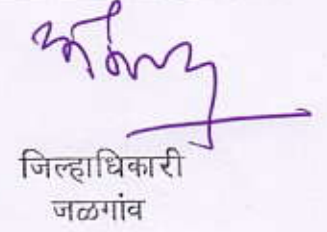 जिल्हाधिकारी
जळगांव